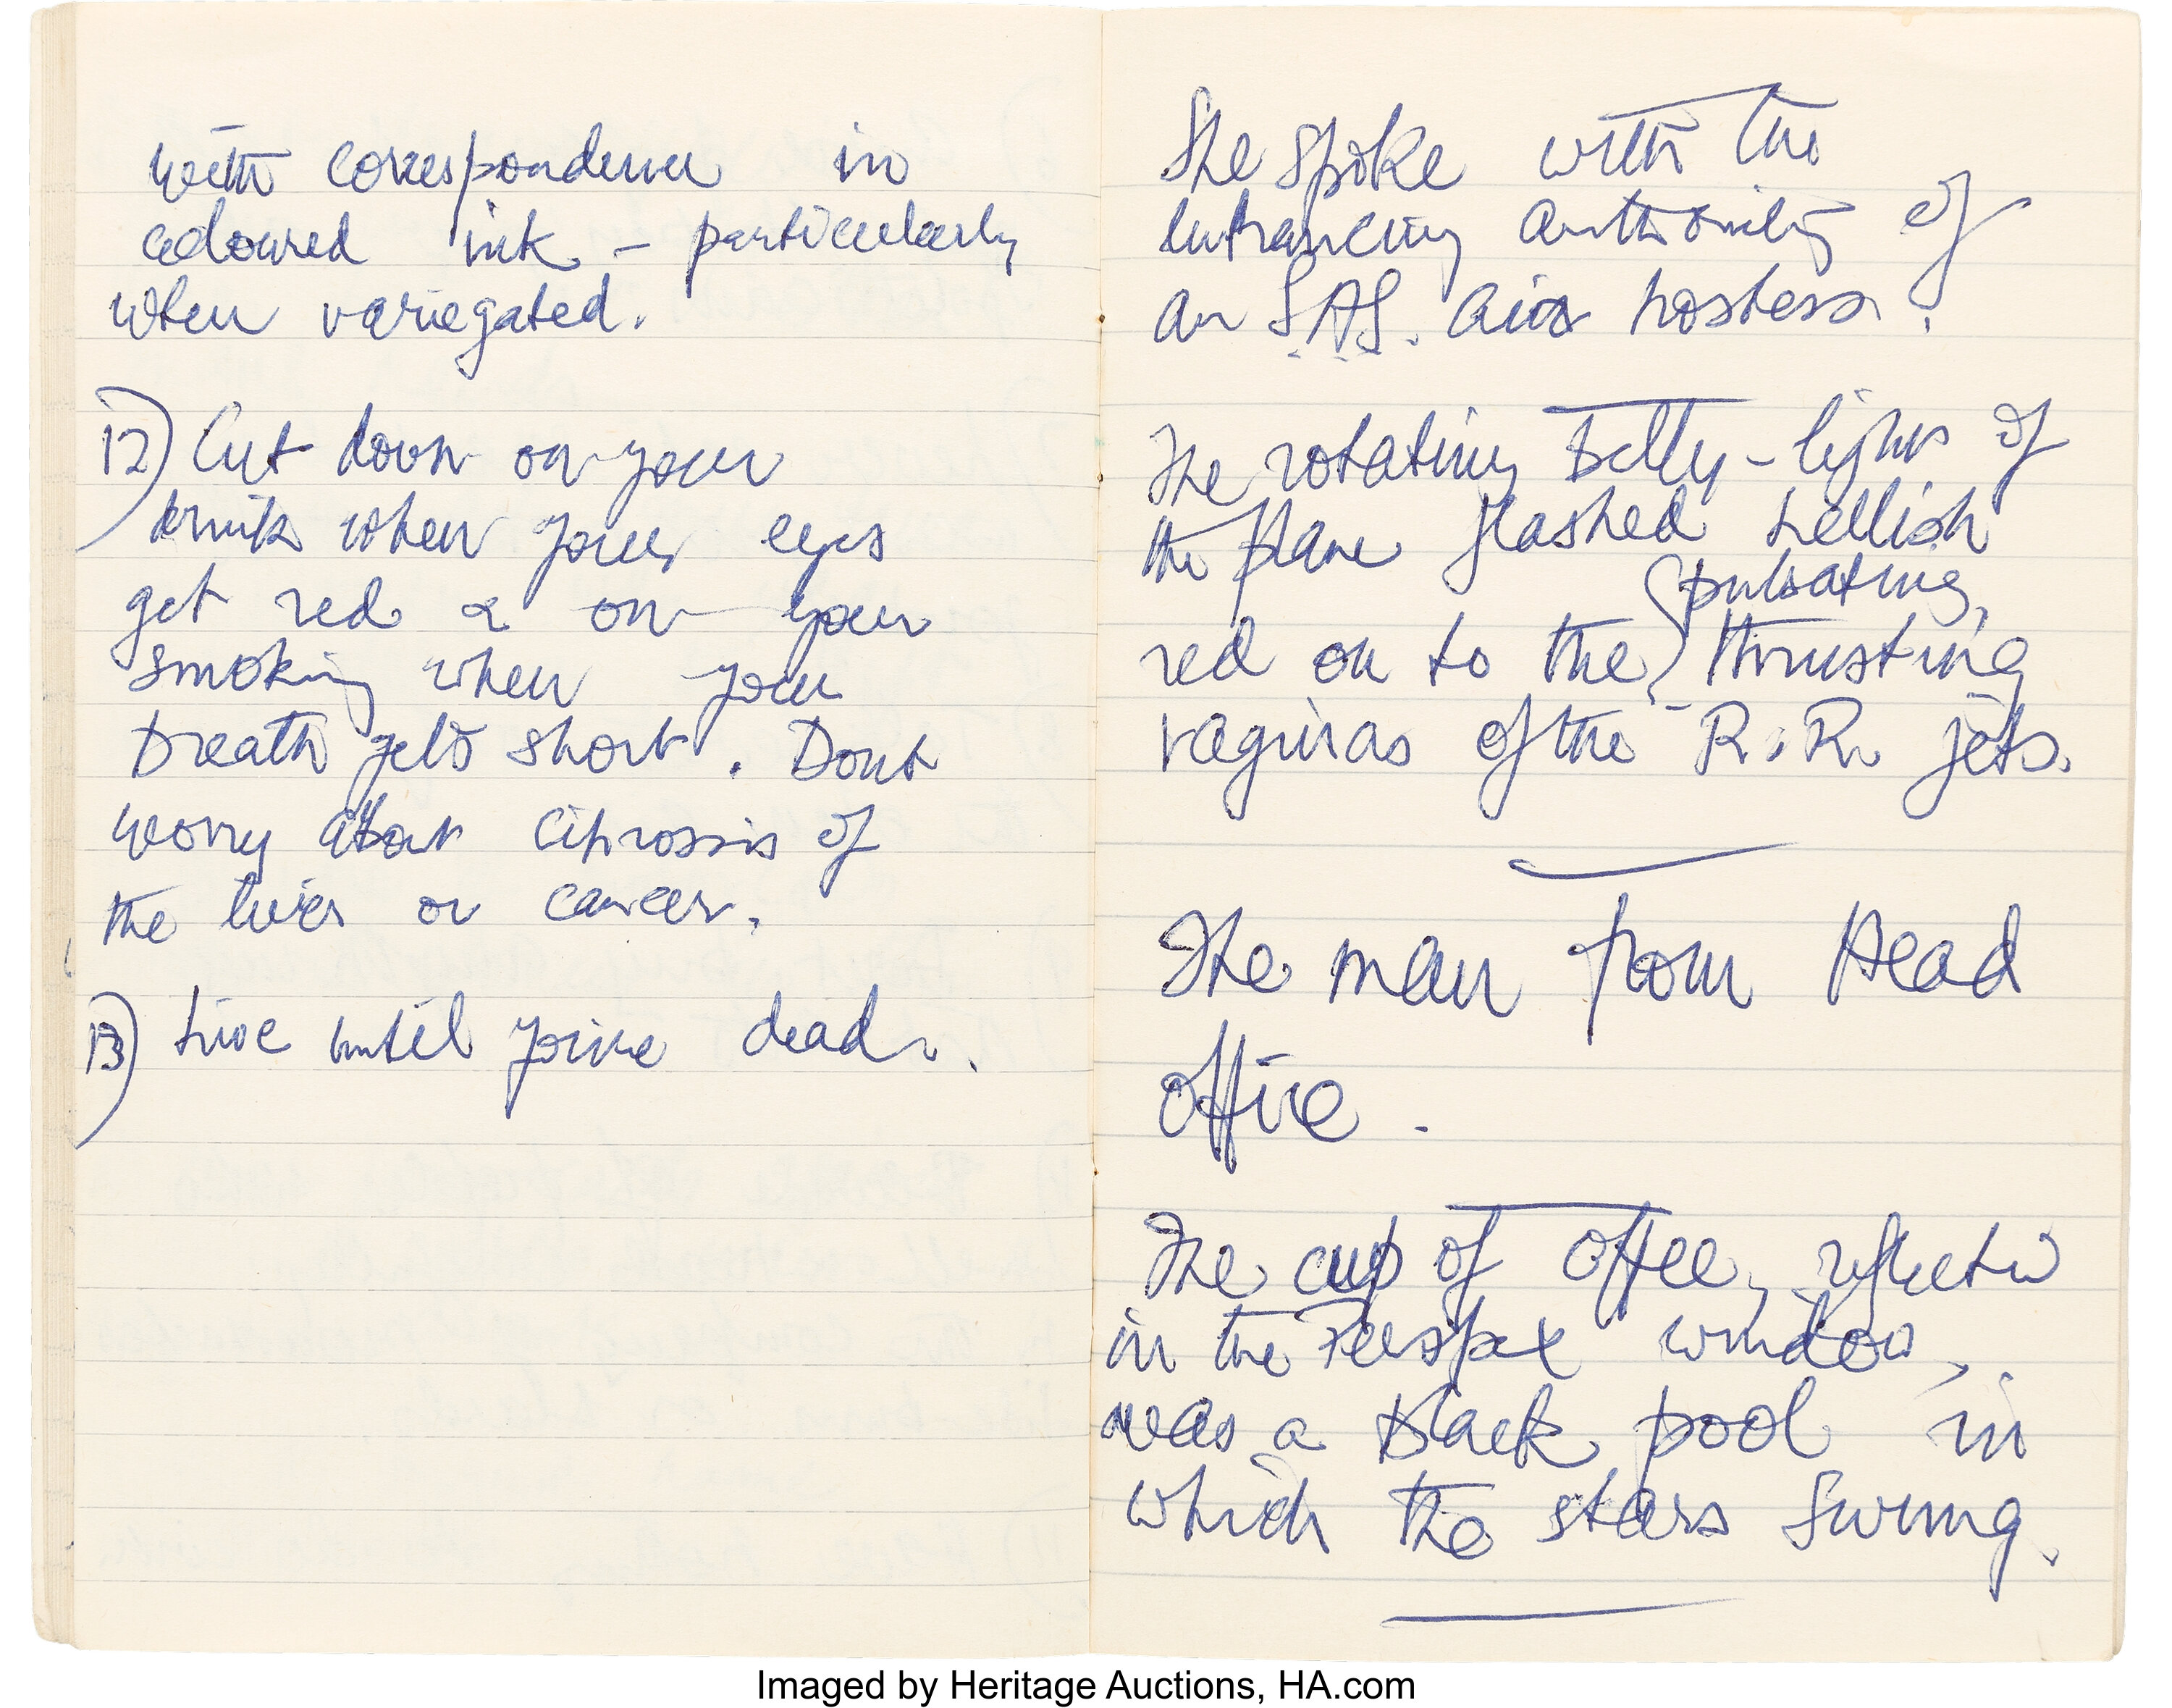 with correspondence in
coloured ink – particularly
when variegated.
12) Cut down on your
drink when your eyes
get red & on your
smoking when your
breath gets short. Dont
worry about cihrossis of
the liver or cancer.
13) Live until you're dead.
She spoke with the
entrancing authority of
an S.A.S. air hostess.
The rotating belly-lights of
the plane flashed hellish
pulsating,
red on to the thrusting
vaginas of the R.R. jets.
The man from Head
Office.
The cup of coffee, reflected
in the Perspex window,
was a black pool in
which the stars swung.
Imaged by Heritage Auctions, HA.com